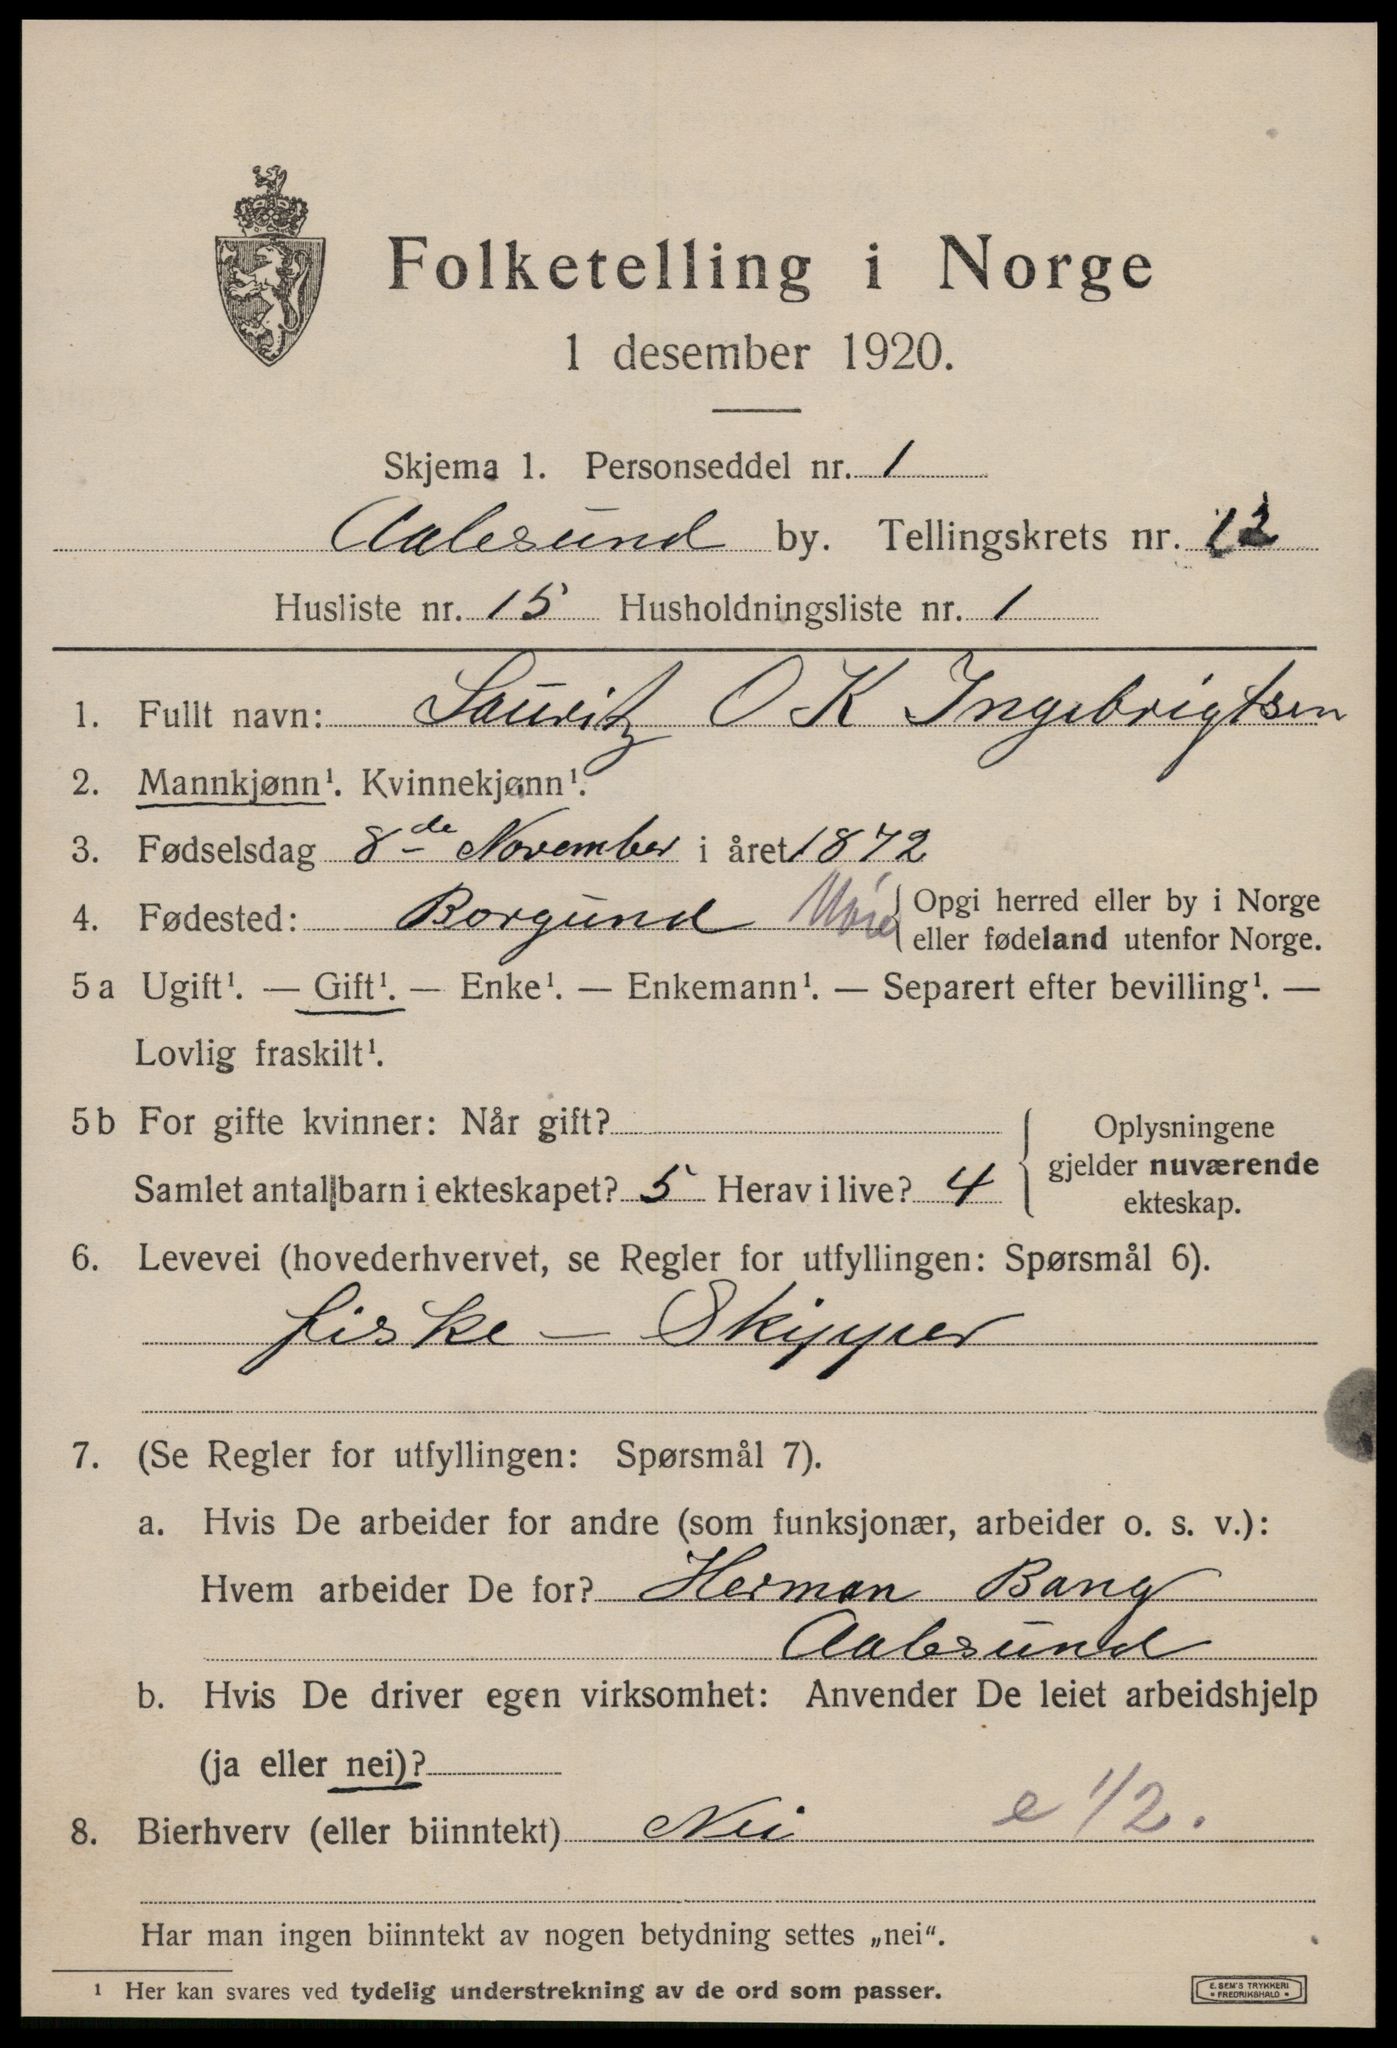 Folketelling i Norge
1 desember 1920.
Skjema 1. Personseddel nr. 1
Aalesund by. Tellingskrets nr. 12
Husliste nr. 15 Husholdningsliste nr. 1
1. Fullt navn: Lauritz O K Ingebrigtsen
2. Mannkjønn¹. Kvinnekjønn¹.
3. Fødselsdag 8de November i året 1872
4. Fødested: Borgund Møre { Opgi herred eller by i Norge
eller fødeland utenfor Norge.
5 a Ugift¹. — Gift¹. — Enke¹. — Enkemann¹. — Separert efter bevilling¹. —
Lovlig fraskilt¹.
5 b For gifte kvinner: Når gift?
Samlet antall barn i ekteskapet? 5 Herav i live? 4
Oplysningene
gjelder nuværende
ekteskap.
6. Levevei (hovederhvervet, se Regler for utfyllingen: Spørsmål 6).
fiske — Skipper
7. (Se Regler for utfyllingen: Spørsmål 7).
a. Hvis De arbeider for andre (som funksjonær, arbeider o. s. v.):
Hvem arbeider De for? Herman Bang
Aalesund
b. Hvis De driver egen virksomhet: Anvender De leiet arbeidshjelp
(ja eller nei)?
e 1/2.
8. Bierhverv (eller biinntekt) Nei
Har man ingen biinntekt av nogen betydning settes „nei".
¹ Her kan svares ved tydelig understrekning av de ord som passer.
E. SEM'S TRYKKERI
* FREDRIKSHALD *